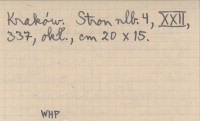 Kraków. Stron nlb. 4, XXII,
337, okł., cm 20 x 15.
WHP